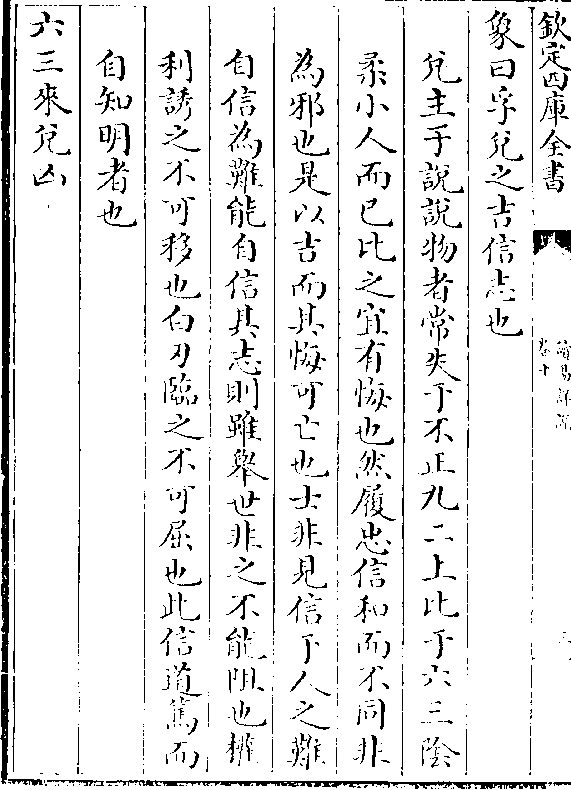 欽定四庫全書
讀易詳說
卷十
象曰孚兌之吉信志也
兌主于說說物者常失于不正九二上比于六三陰
柔小人而已比之宜有悔也然履忠信和而不同非
為邪也是以吉而其悔可亡也士非見信于人之難
自信為難能自信其志則雖舉世非之不能阻也權
利誘之不可移也白刃臨之不可屈也此信道篤而
自知明者也
六三來兌凶